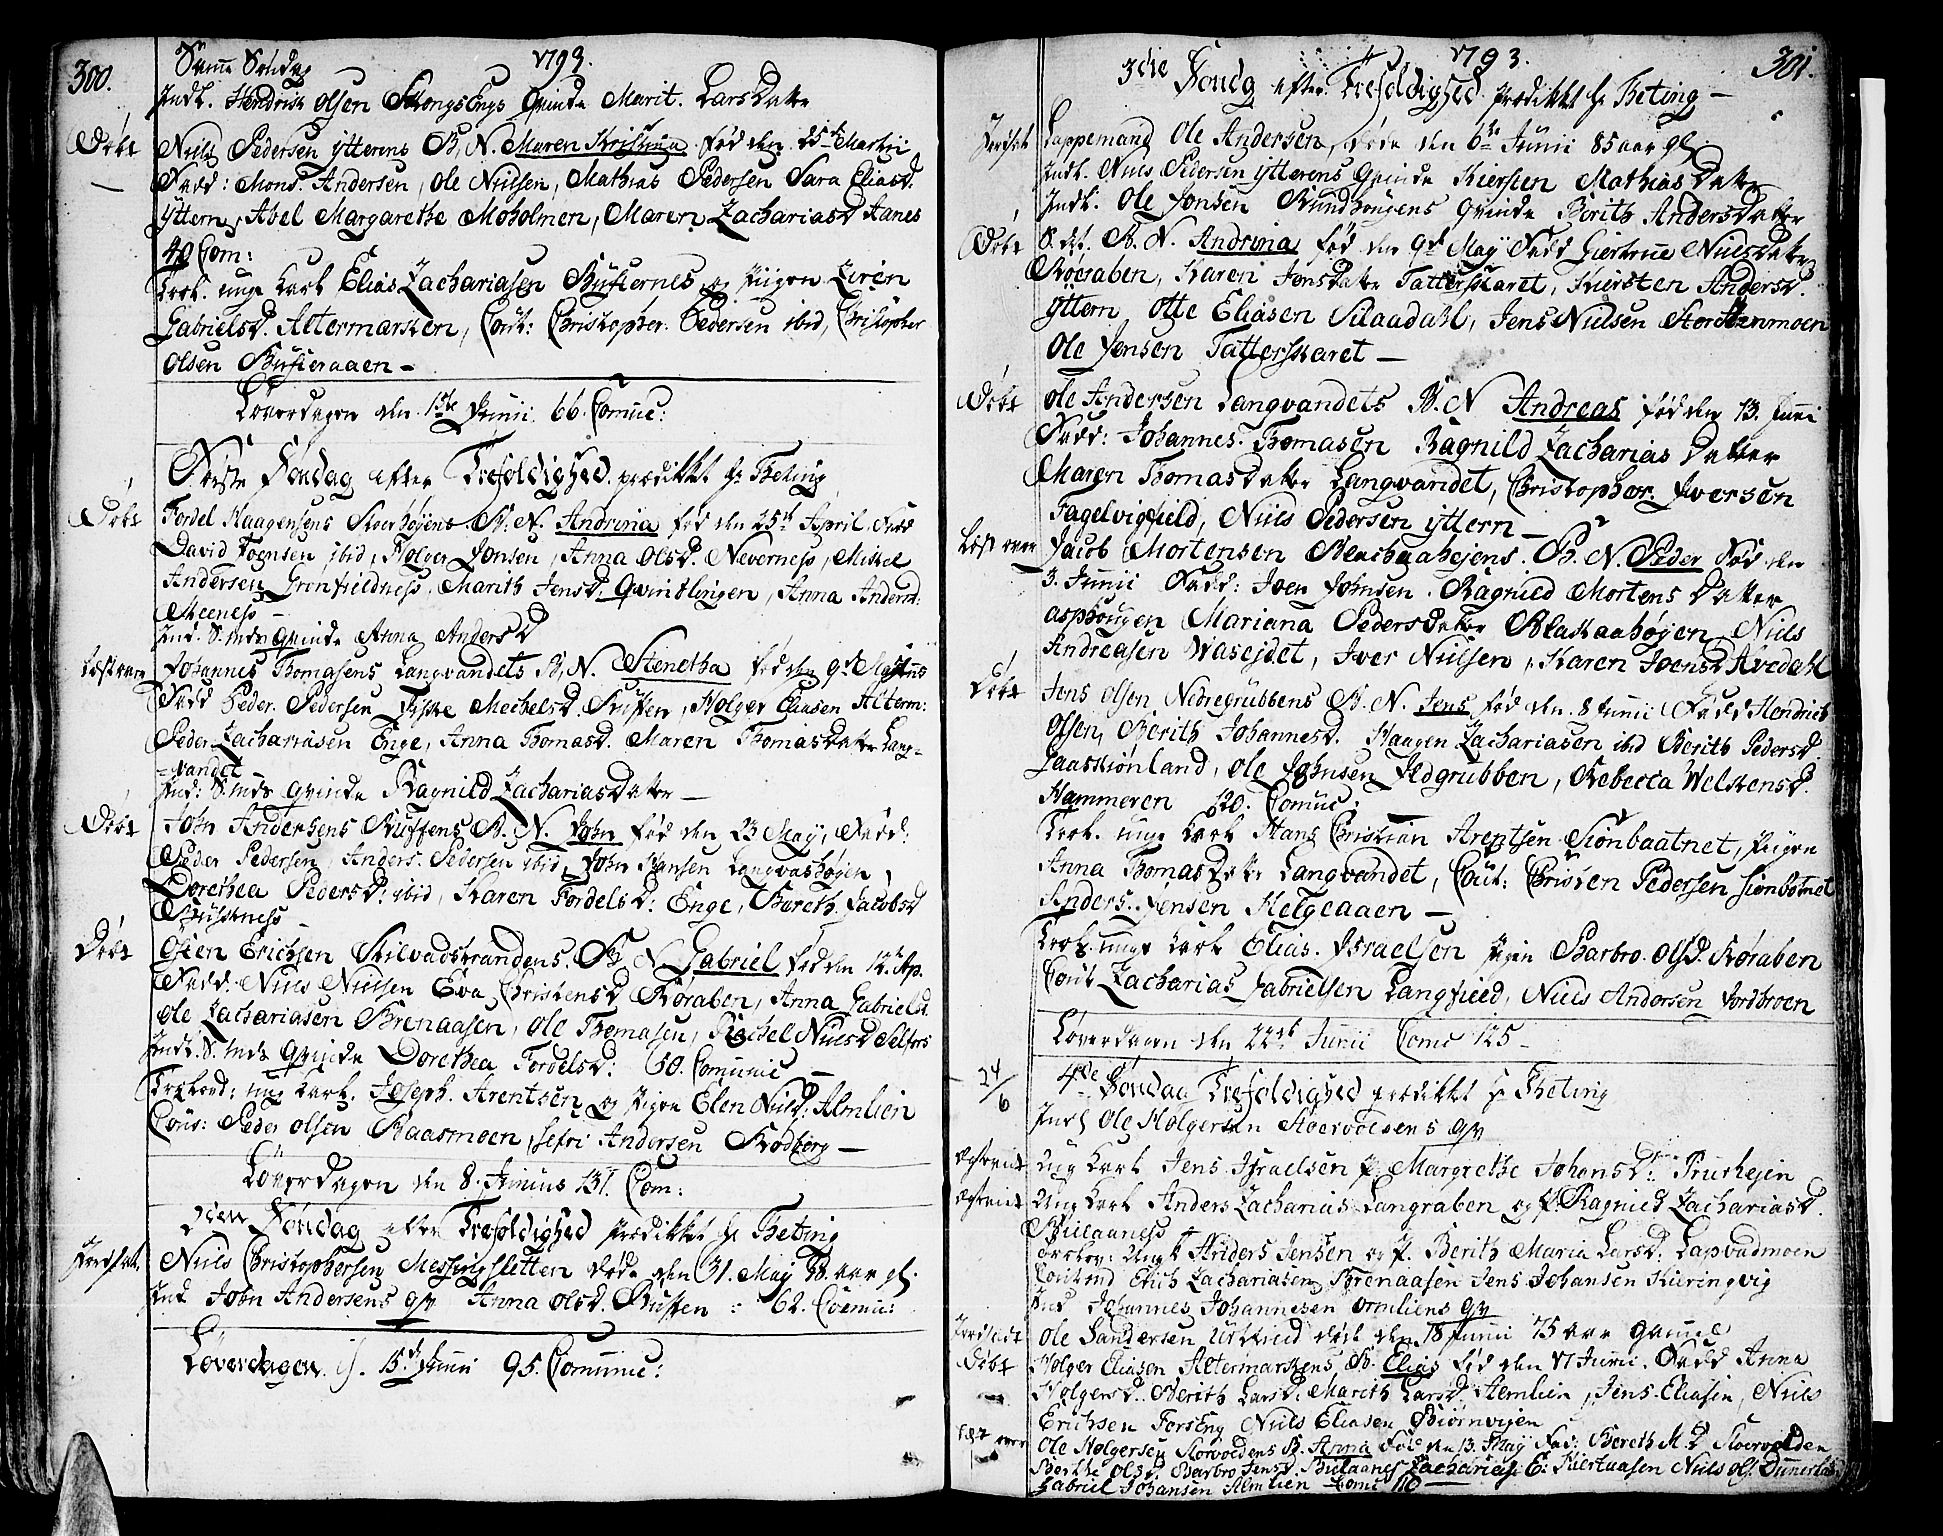 300.
1793.
Samme Søndag
Indl. Hendrich Olsen Qvinde Marit. LarsDatter
Døbt Niels Pedersen ytterens B, N. Maren Kristina fød den 25de Martii
Fadd: Mons. Andersen, Ole Nielsen, Mathias Pedersen Sara Eliasd.
ÿttern, Abel Margarethe Moholmen, Maren Zachariasd Aanes
40 Com:
Trol. unge Karl Elias Zachariasen Busternes, og Pigen Ziren
Gabrielsd. Altermarken, Cout: Christopher Pedersen ibid, Christopher
Olsen Busteraaen -
Løverdagen den 1de Junii 66. Comuc:
Første Søndag efter Trefoldighed prædikket Hr Theting
Døbt Fordel Haagensens Storhøjens B. N. Andrina fød den 25de April Fadd
David Toensen ibid, Holger Jonsen, Anna Olsd. Neverness, Mikel
Andersen Grønfieldness. Marith Jensd. Qvintlingen, Anna Andersd:
Meeness -
Ind. S. mds Qvinde Anna AndersD
Læst over Johannes Thomasens Langvandets B, N. Stenetha fød den 9de
Fadd Peder Pedersen Mechelsd. Rufsen, Holger Eliasen Alterm:
Peder Zachariasen Enge, Anna Thomasd. Maren ThomasDatter Lang-
=vandet
Ind: S. mds Qvinde Ragnild ZachariasDatter -
Døbt John Andersens Ruffens B. N. John fød den 23 May, Fadd:
Peder Pedersen, Anders Pedersen ibid, John Hansen Langvashøgen,
Dorethea Pedersd: ibid, Karen Fordelsd: Enge, Bereth Jacobsd
Døbt Osten Erichsen Skilvadstrandens. B. N. Gabriel fød den 12te Ap.
Fadd. Niels Nielsen Eva Christensd Røraben, Anna Gabrielsd.
Ole Zachariasen Brenaasen, Ole Thomasen, Rachel Nielsd Selfors
Indl. S. mds Qvinde Dorethea Fordelsd: 60. Comunic -
Trolovd: ung Karl. Joseph. Arentsen og Pigen Elen Nielsd: Almlien
Cous: Peder Olsen Raasmoen, Andersen Rødberg -
Løverdagen den 8. Junius 137. Com:
2den Søndag efter Trefoldighed prædikket Hr Theting
Jordfæst. Niels Christophersen Messingsletten døde den 31. May 38. aar gl.
Ind John Andersens qv Anna Olsd. Ruffen : 62. Comu:
Løverdagen d. 15de Junii 95. Comunic:
301.
1793.
3die Søndg efter Trefoldighed prædikket Hr Theting -
Jordfæst Lappemand Ole Andersen, døde den 6te Junii 85 aar gl.
Indl. Niels Pedersen ytterens Qvinde Kiersten MathiasDatter
Indl. Ole Jonsen Rundhougens Qvinde Berith AndersDatter
Døbt S. dl. B. N. Andrina fød den 9de Maÿ Fadd Giertrue NielsDatter
Røeraben, Karen JensDatter Tatterskaret, Kiersten Andersd.
ÿttern, Otte Eliasen Silaadahl, Jens Nielsen
Ole Jensen Tatterskaret -
Døbt Ole Andersen Langvandets B. N Andreas fød den 13. Juni
Fadd: Johannes. Thomasen Ragnild ZachariasDatter
Maren ThomasDatter Langvandet, Christopher. Iversen
Fagelvigfield, Niels Pedersen ÿttern -
Læst over Jacob Mortensen B. N. Peder Fød den
3. Junii Fadd: Joen Johnsen. Ragnild MortensDatter
asphougen Mariana PedersDatter Blakaahøgen, Niels
Andreasen Wasejdet, Iver Nielsen, Karen Joensd Avedahl
Døbt Jens Olsen Nedregrubbens B. N. Jens fød den 8 Junii Fadd Hendrich
Olsen, Berith Johannesd. Haagen Zachariasen ibid Berith Pedersd.
Gaasskiønland, Ole Johnsen Jldgrubben, Rebecca Welkensd.
Hammeren 120. Comuc:
Trol. unge Karl Hans Christian Arentsen Siønbaatnet, Pigen
Anna ThomasDatter Langvandet, Cout: Christen Pedersen Siønbotnet
Anders. Jensen Helgeaaen -
Trol. unge Karl Elias. Jsraelsen Pigen Barbro. Olsd. Røraben
Cout Zacharias Gabrielsen Langfield, Niels Andersen Jordbroen
Løverdagen den 22de Junii Comc 125 -
24/6
4de Søndag Trefoldighed prædikket Hr Theting
Indl Ole Holgersen Storvoldsens qv
Ægteviet Ung Karl Jens Jsraelsen P. Margrethe Johansd:
Ægteviet Ung Karl Anders Zacharias Langraben og P. Ragnild Zachariasd.
Bielaanes
Trolov: Ungk Anders Jensen og P. Berith Maria Larsd. Lapvadmoen
Coutend Erich Zachariasen Brenaasen Jens Johansen Kieringvig
Ind Johannes Johannesen Ormliens qv
Jordfæst Ole Sandersen Urtfield døde den 18 Junii 75 aar gammel
Døbt Holger Eliasen Altermarkens B. Elias fød den 17 Junii. Fadd Anna
Holgersd. Berith Larsd. Marith Larsd Almlien, Jens Eliasen, Niels
Erichsen Forseng Niels Eliasen Biørnvigen
Læst over Ole Holgersen Storvoldens B. Anna Fød den 13. Maÿ Fad: Bereth M.D Storvolden
Berthe Olsd. Barbro Jensd. Bielaanes Zacharias E: Niels Ols.
Gabriel Johansen Almlien Comc 116 -